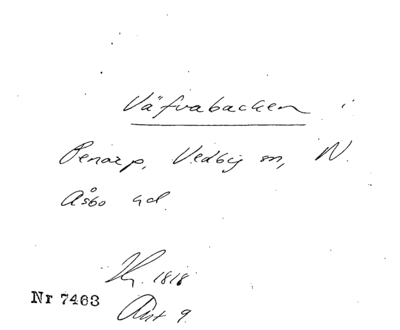 Väfvabacken
Penarp, Vedby sn, N.
Åsbo hd.
Hg. 1818
Akt 9
Nr 7463